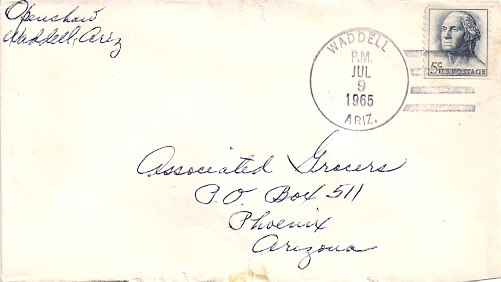 Openshaw
Waddell, Ariz
WADDELL
P.M.
JUL
9
1965
ARIZ.
5c U.S. POSTAGE
Associated Grocers
P.O. Box 511
Phoenix
Arizona